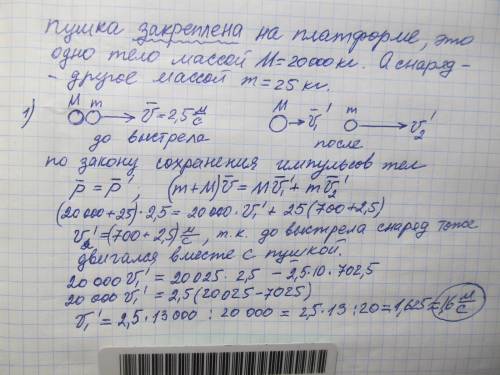 пушка закреплена на платформе, это
одно тело массой M=20000кг. А снаряд-
- другое массой m=25 кг.
1) M m v̄=2,5 м/с M v̄₁' m v₂'
до выстрела после
по закону сохранения импульсов тел
p̄ = p̄', (m+M)v̄ = Mv̄₁' + mv̄₂'
(20 000+25)·2,5 = 20 000·v₁' + 25(700+2,5)
v₂'=(700+2,5) м/с, т.к. до выстрела снаряд тоже
двигался вместе с пушкой.
20 000 v₁' = 20 025 · 2,5 - 2,5·10·702,5
20 000 v₁' = 2,5(20 025 - 7025)
v₁' = 2,5·13000 : 20 000 = 2,5·13:20 = 1,625 = 1,6 м/с